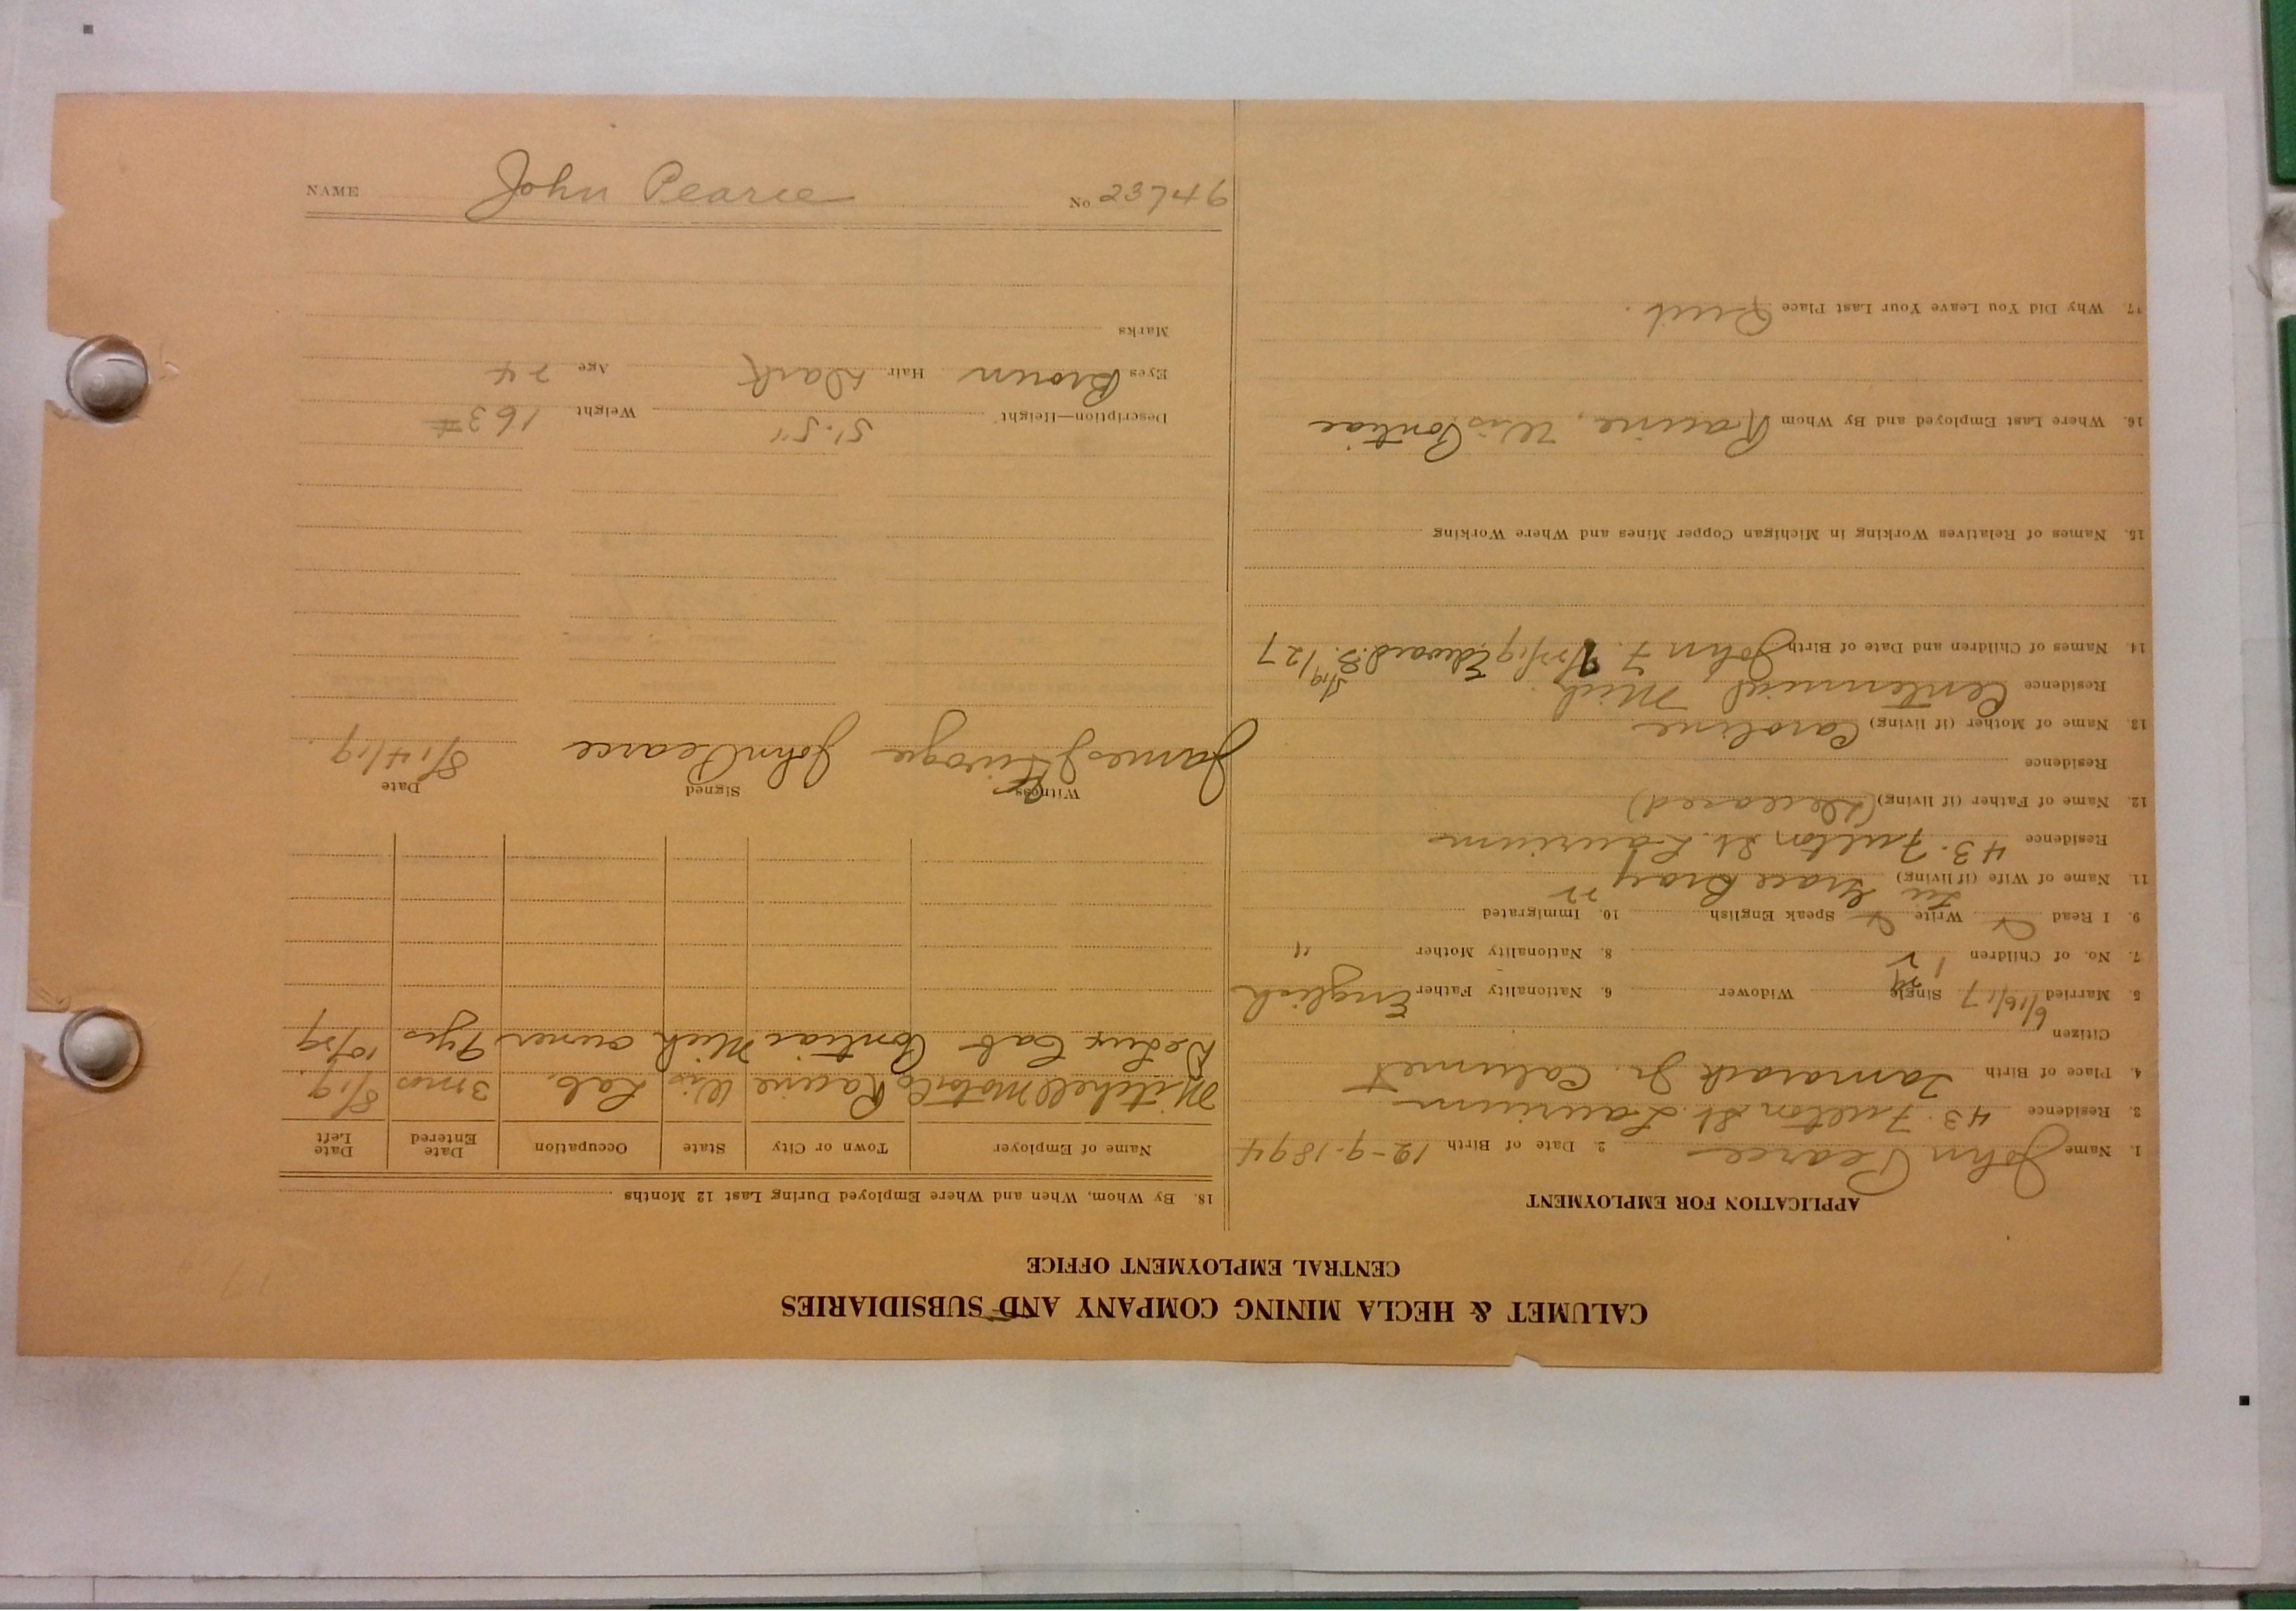 CALUMET & HECLA MINING COMPANY AND SUBSIDIARIES
CENTRAL EMPLOYMENT OFFICE
APPLICATION FOR EMPLOYMENT
1. Name John Pearce 2. Date of Birth 12-9-1894
3. Residence 43 Fulton St. Laurium
4. Place of Birth Tamarack Jr. Calumet
Citizen
5. Married 6/16/17 Single Widower 6. Nationality Father English
7. No. of Children 1 2 8. Nationality Mother "
9. I Read Write Speak English 10. Immigrated
11. Name of Wife (if living) Grace Bray
Residence 43. Fulton St. Laurium
12. Name of Father (if living) (Deceased)
Residence
13. Name of Mother (if living) Caroline
Residence Centennial Mich.
14. Names of Children and Date of Birth John F. Edward B. 5/19/27
15. Names of Relatives Working in Michigan Copper Mines and Where Working
16. Where Last Employed and By Whom Racine, Wis Pontiac
17. Why Did You Leave Your Last Place Quit.
18. By Whom, When and Where Employed During Last 12 Months
Name of Employer Town or City State Occupation Date Entered Date Left
Mitchell Motor Co Racine Wis Lab. 3 mos 8/19.
Delux Cab Pontiac Mich owner 9 yrs 10/29
Witness Signed Date
James John Pearce 8/14/19.
Description—Height 5'.5" Weight 163#
Eyes Brown Hair Dark Age 24
Marks
NAME John Pearce No 23746